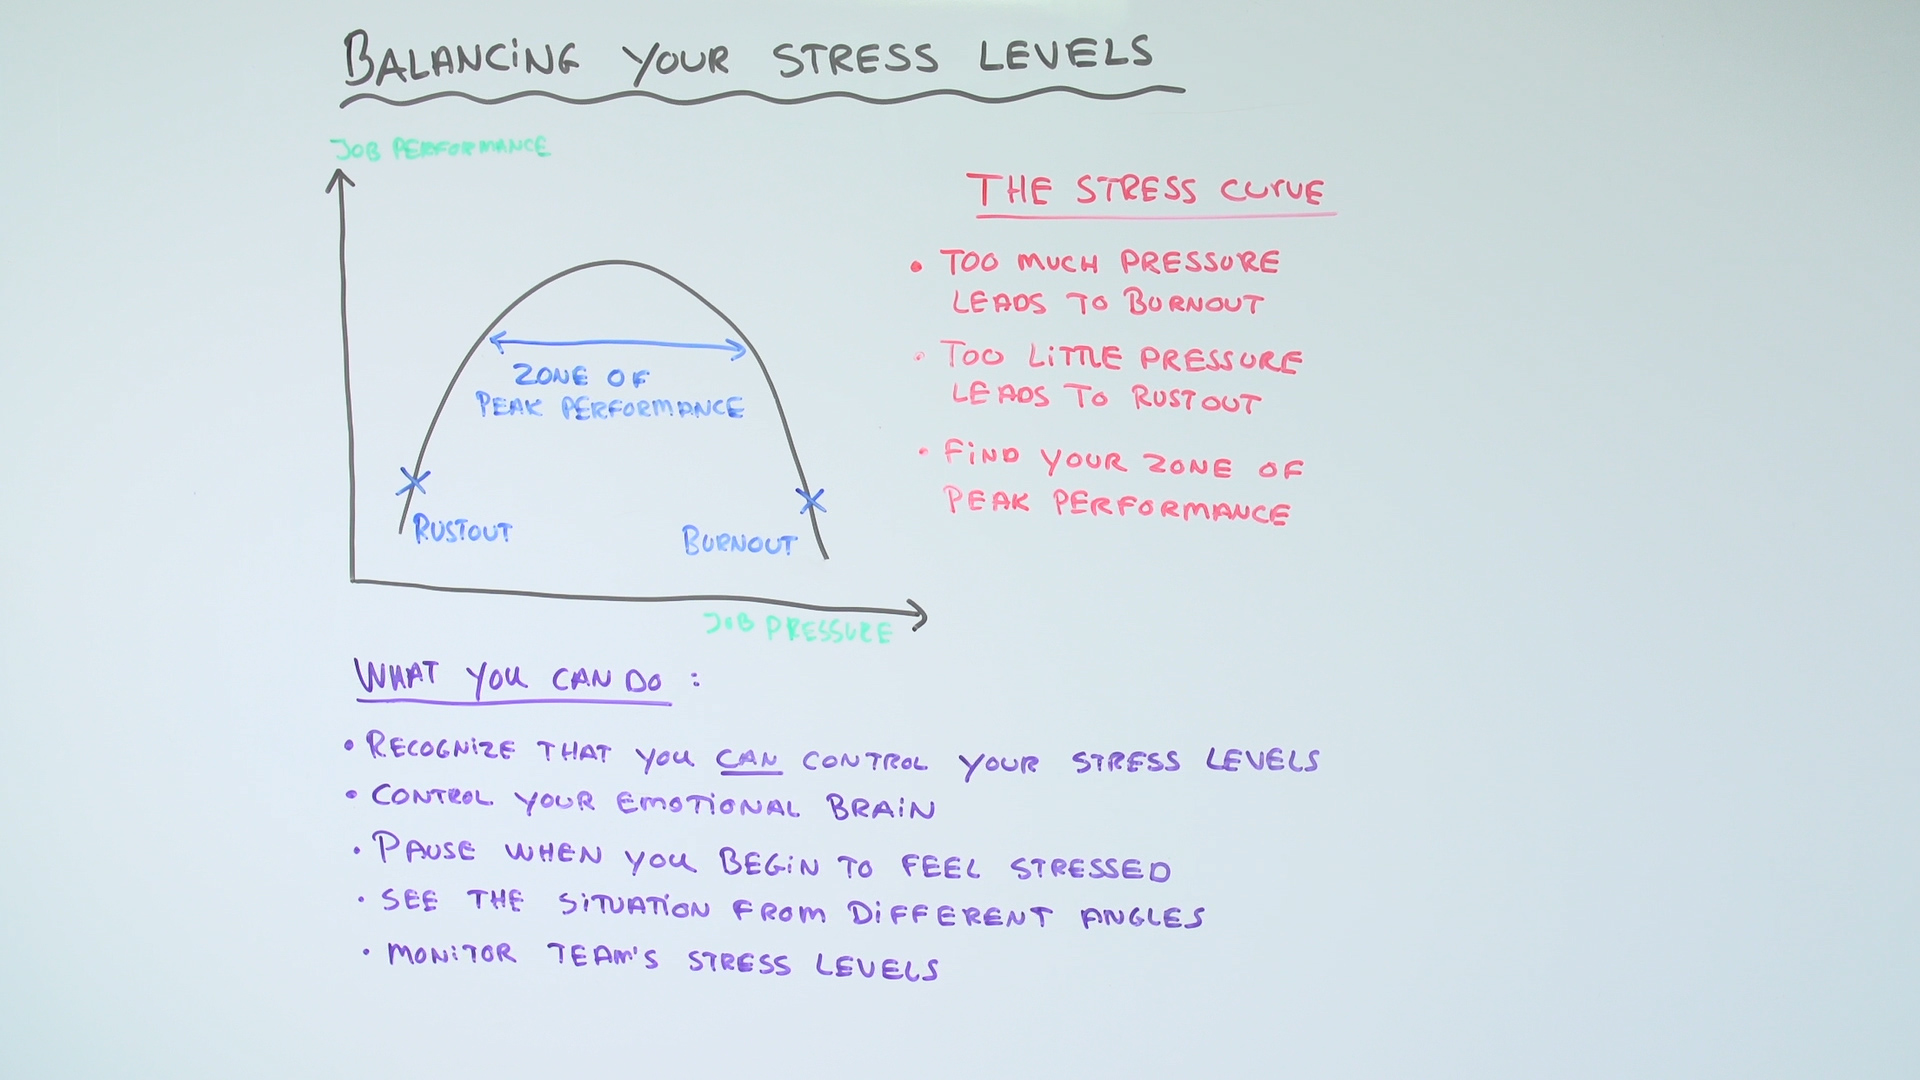 BALANCiNG YOUR STRESS LEVELS
JOB PERFORMANCE
ZONE OF
PEAK PERFORMANCE
RUSTOUT
BURNOUT
JOB PRESSURE
THE STRESS CURVE
• TOO MUCH PRESSURE
LEADS TO BURNOUT
• TOO LiTTLE PRESSURE
LEADS TO RUSTOUT
• FiND YOUR ZONE OF
PEAK PERFORMANCE
WHAT YOU CAN DO :
• RECOGNiZE THAT YOU CAN CONTROL YOUR STRESS LEVELS
• CONTROL YOUR EMOTiONAL BRAiN
• PAUSE WHEN YOU BEGiN TO FEEL STRESSED
• SEE THE SiTUATiON FROM DiFFERENT ANGLES
• MONiTOR TEAM'S STRESS LEVELS